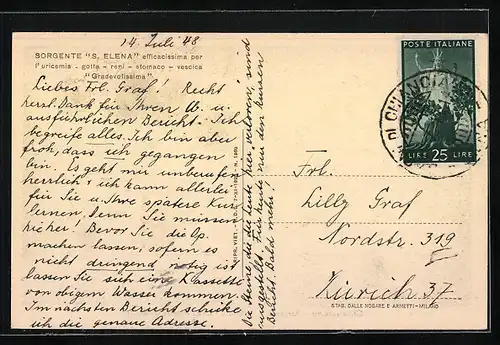 14. Juli 48
SORGENTE "S. ELENA" efficacissima per
l'uricemia - gotta - reni - stomaco - vescica
"Gradevolissima"
Liebes Frl. Graf! Recht
herzl. Dank für Ihren lb. u.
ausführlichen Bericht. Ich
begreife alles. Ich bin aber
froh, dass ich gegangen
bin. Es geht mir unberufen
herrlich & ich kann allerlei
für Sie u. Ihre spätere Kur
lernen, denn Sie müssen
hieher! Bevor Sie die Op.
machen lassen, sofern es
nicht dringend nötig ist
lassen Sie sich eine Klassette
von obigem Wasser kommen.
Im nächsten Bericht schicke
ich die genaue Adresse.
Die Steine, die die Leute hier verloren, sind
ausgestellt. Für heute nur den kurzen
Bericht. Bald mehr!
POSTE ITALIANE
LIRE 25 LIRE
DI CHIANCIANO
Frl.
Lilly Graf
Nordstr. 319
Zürich 37
STAB. DALLE NOGARE E ARMETTI - MILANO